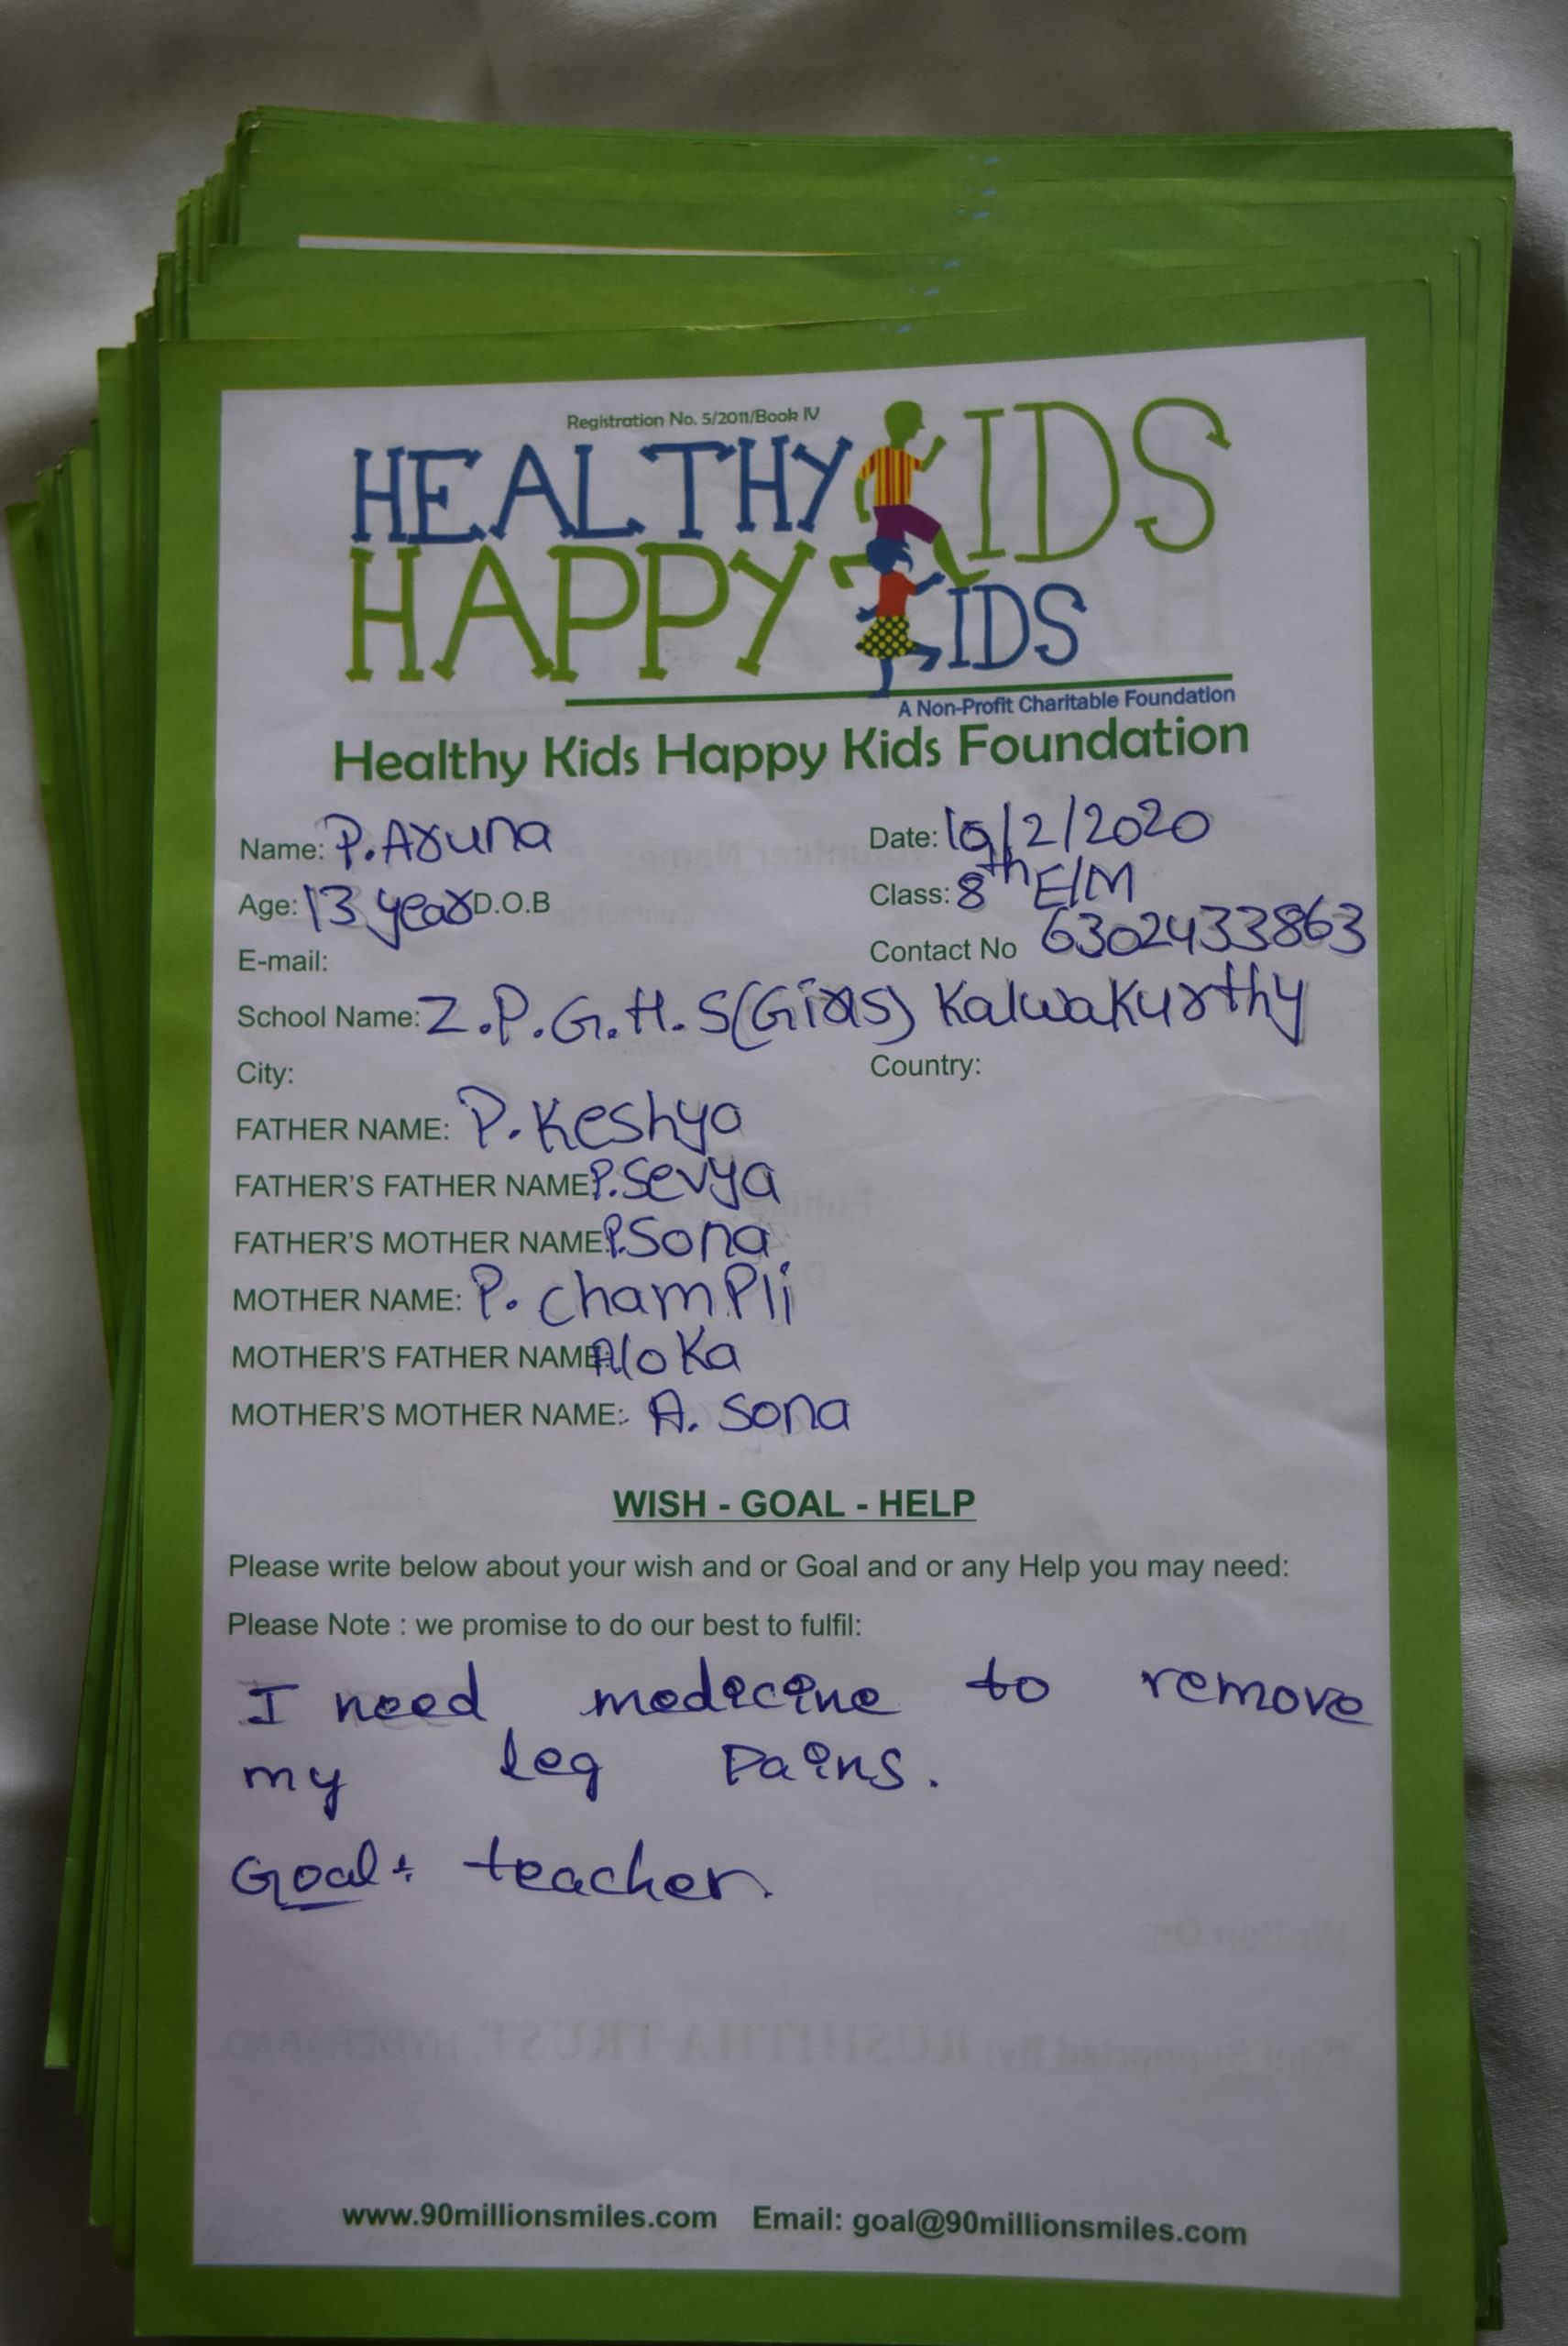 Registration No. 5/2011/Book IV
HEALTHY KIDS
HAPPY KIDS
A Non-Profit Charitable Foundation
Healthy Kids Happy Kids Foundation
Name: P. Aruna Date: 10/2/2020
Age: 13 year D.O.B Class: 8th E/M
E-mail: Contact No 6302433863
School Name: Z.P.G.H.S (Girls) Kalwakurthy
City: Country:
FATHER NAME: P. Keshya
FATHER'S FATHER NAME: P. Sevya
FATHER'S MOTHER NAME: P. Sona
MOTHER NAME: P. ChamPli
MOTHER'S FATHER NAME: AloKa
MOTHER'S MOTHER NAME: A. Sona
WISH - GOAL - HELP
Please write below about your wish and or Goal and or any Help you may need:
Please Note : we promise to do our best to fulfil:
I need medicine to remove
my leg Pains.
Goal: teacher.
www.90millionsmiles.com Email: goal@90millionsmiles.com